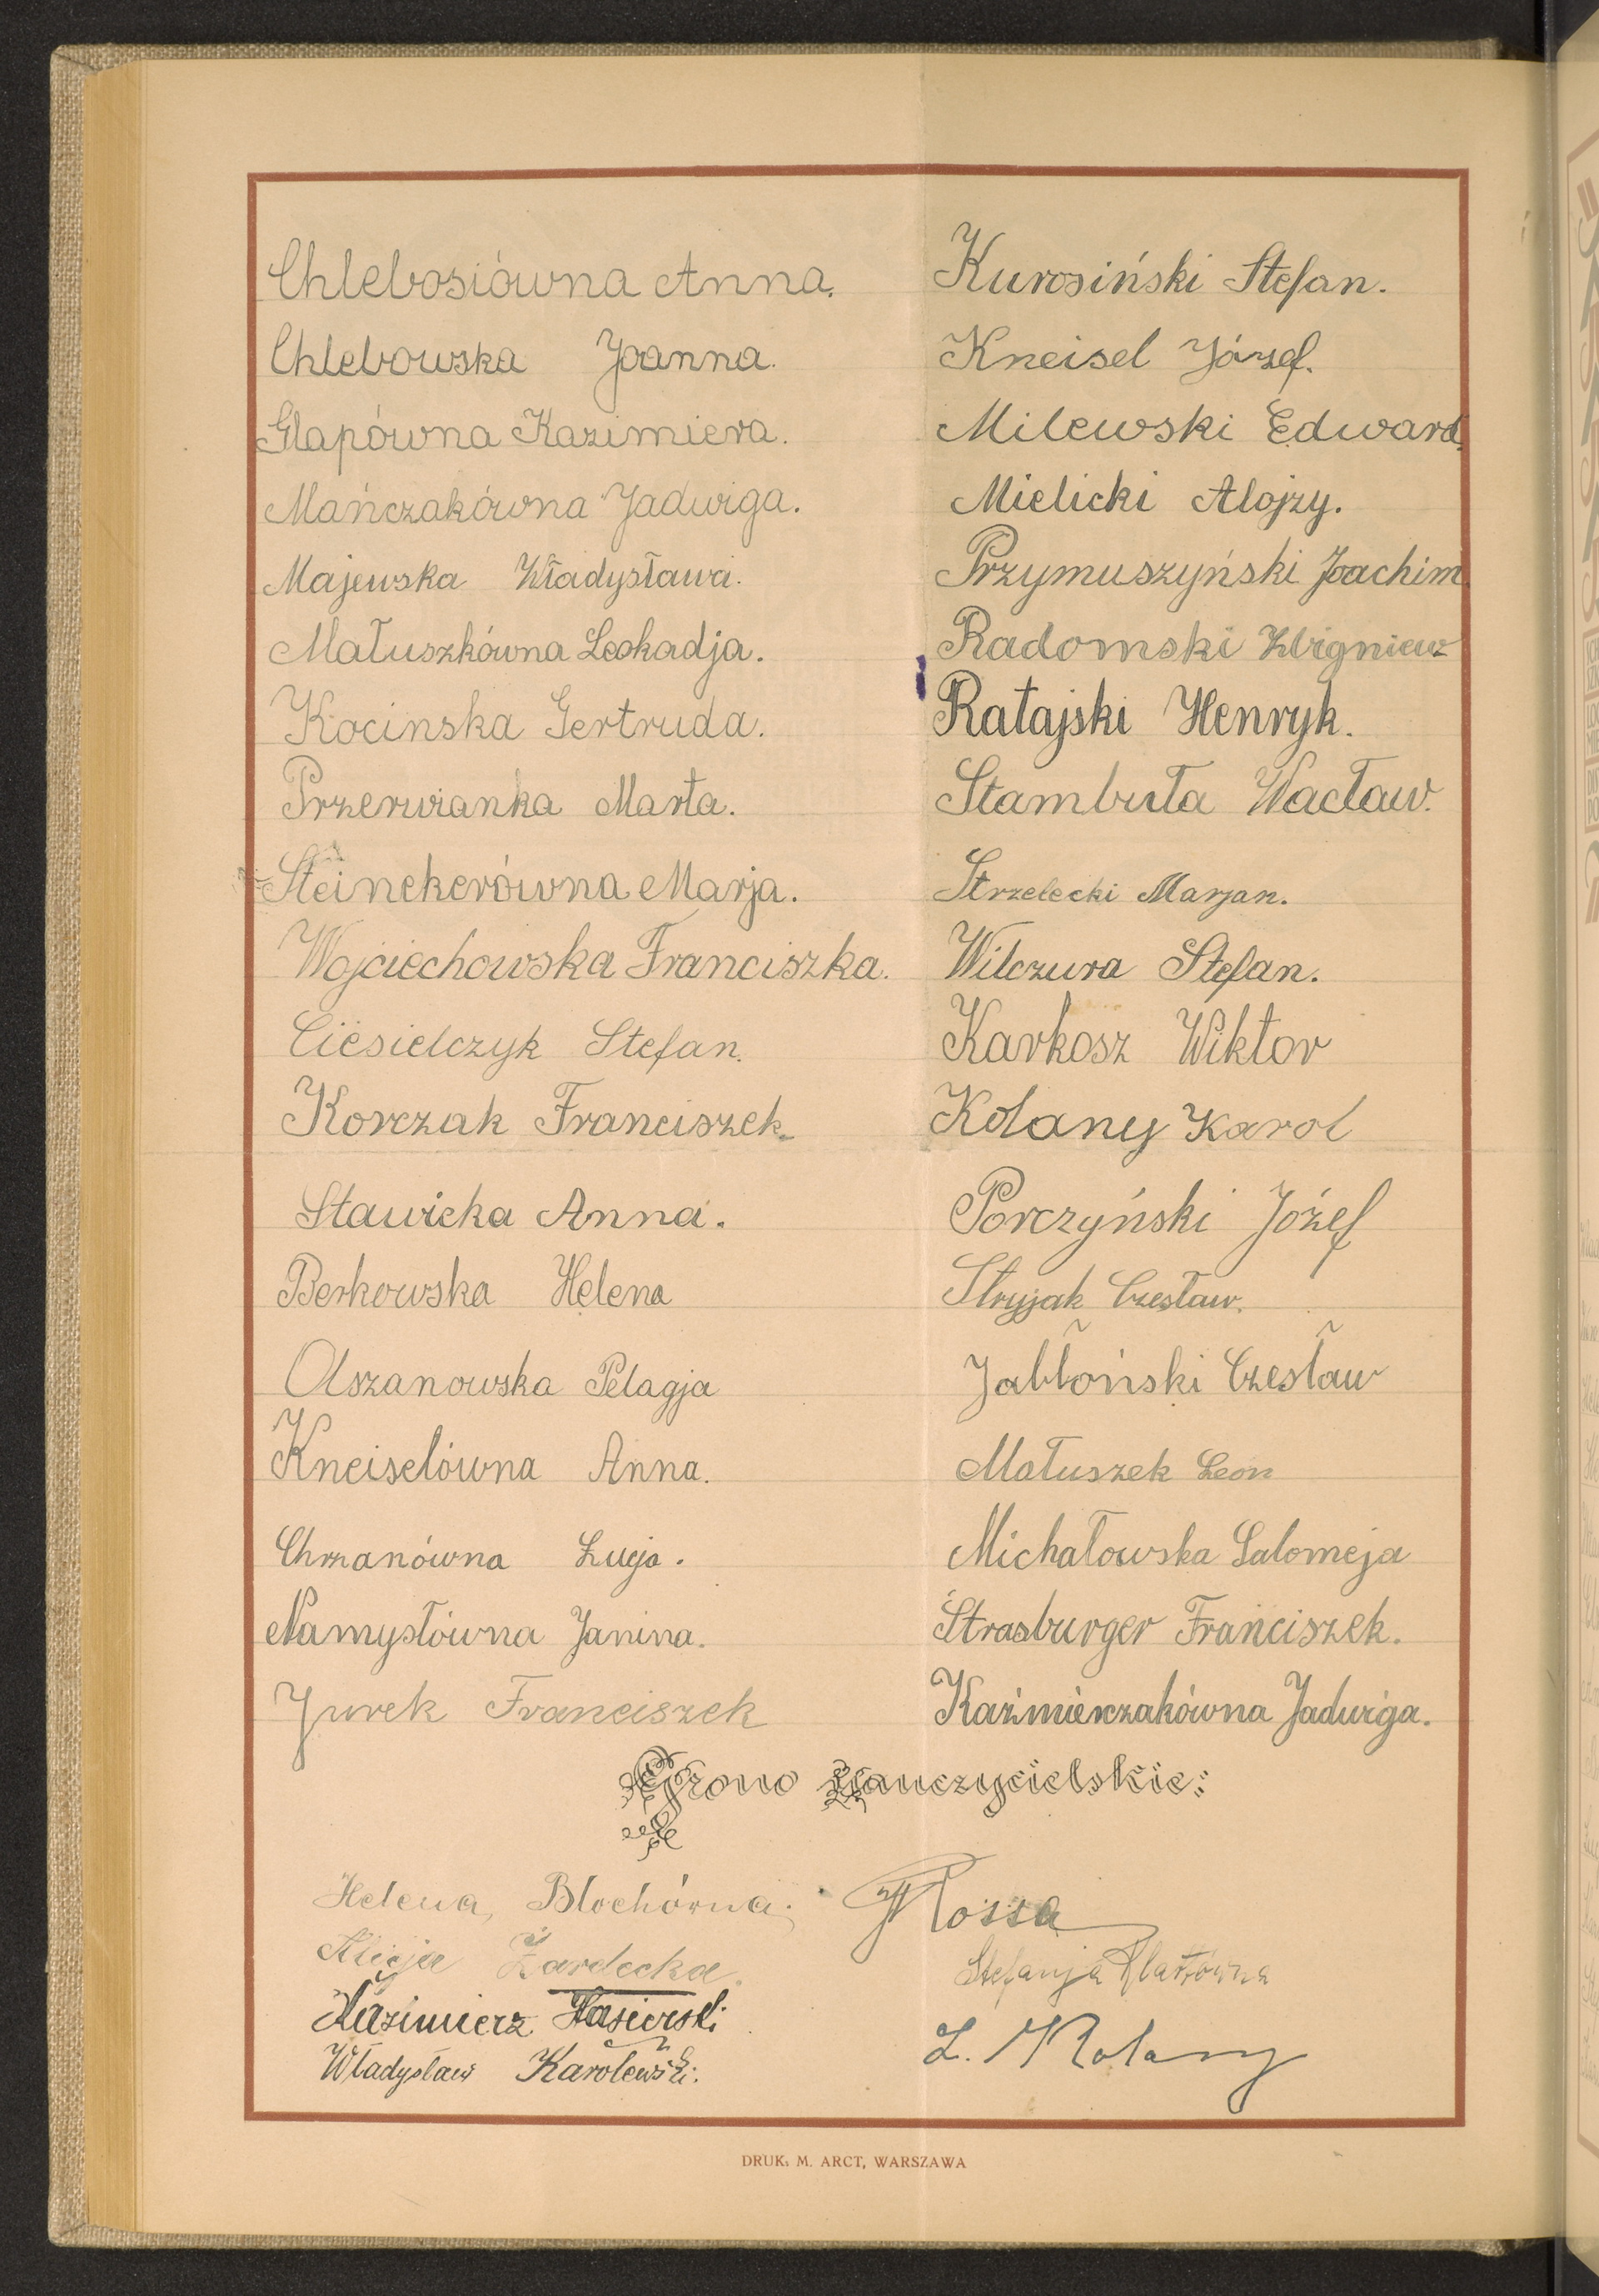 Chlebosiówna Anna.
Chlebowska Joanna.
Glapówna Kazimiera.
Mańczakówna Jadwiga.
Majewska Władysława.
Matuszkówna Leokadja.
Kocinska Gertruda.
Przerwianka Marta.
Steinekerówna Marja.
Wojciechowska Franciszka.
Ciesielczyk Stefan.
Korczak Franciszek.
Stawicka Anna.
Berkowska Helena
Olszanowska Pelagja
Kneiselówna Anna.
Chrzanówna Łucja.
Namysłówna Janina.
Jurek Franciszek
Kurosiński Stefan.
Kneisel Józef.
Milewski Edward.
Mielicki Alojzy.
Przymuszyński Joachim.
Radomski Zbigniew
Ratajski Henryk.
Stambuła Wacław.
Strzelecki Marjan.
Wilczura Stefan.
Karkosz Wiktor
Kolany Karol
Porczyński Józef
Stryjak Czesław.
Jabłoński Czesław
Matuszek Leon
Michałowska Salomeja
Strasburger Franciszek.
Kaźmierczakówna Jadwiga.
Grono nauczycielskie:
Helena Blochówna.
Alicja Żardecka
Kazimierz
Władysław Karolewski.
Rossa
Stefanja
L. Kolany
DRUK: M. ARCT, WARSZAWA